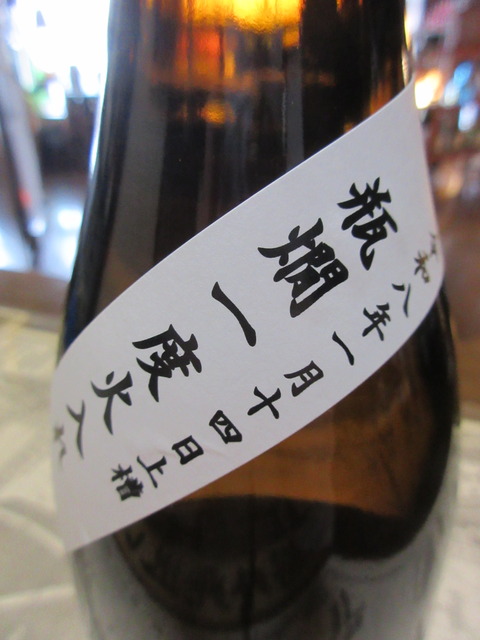 令和八年一月十四日上槽
瓶燗一度火入れ